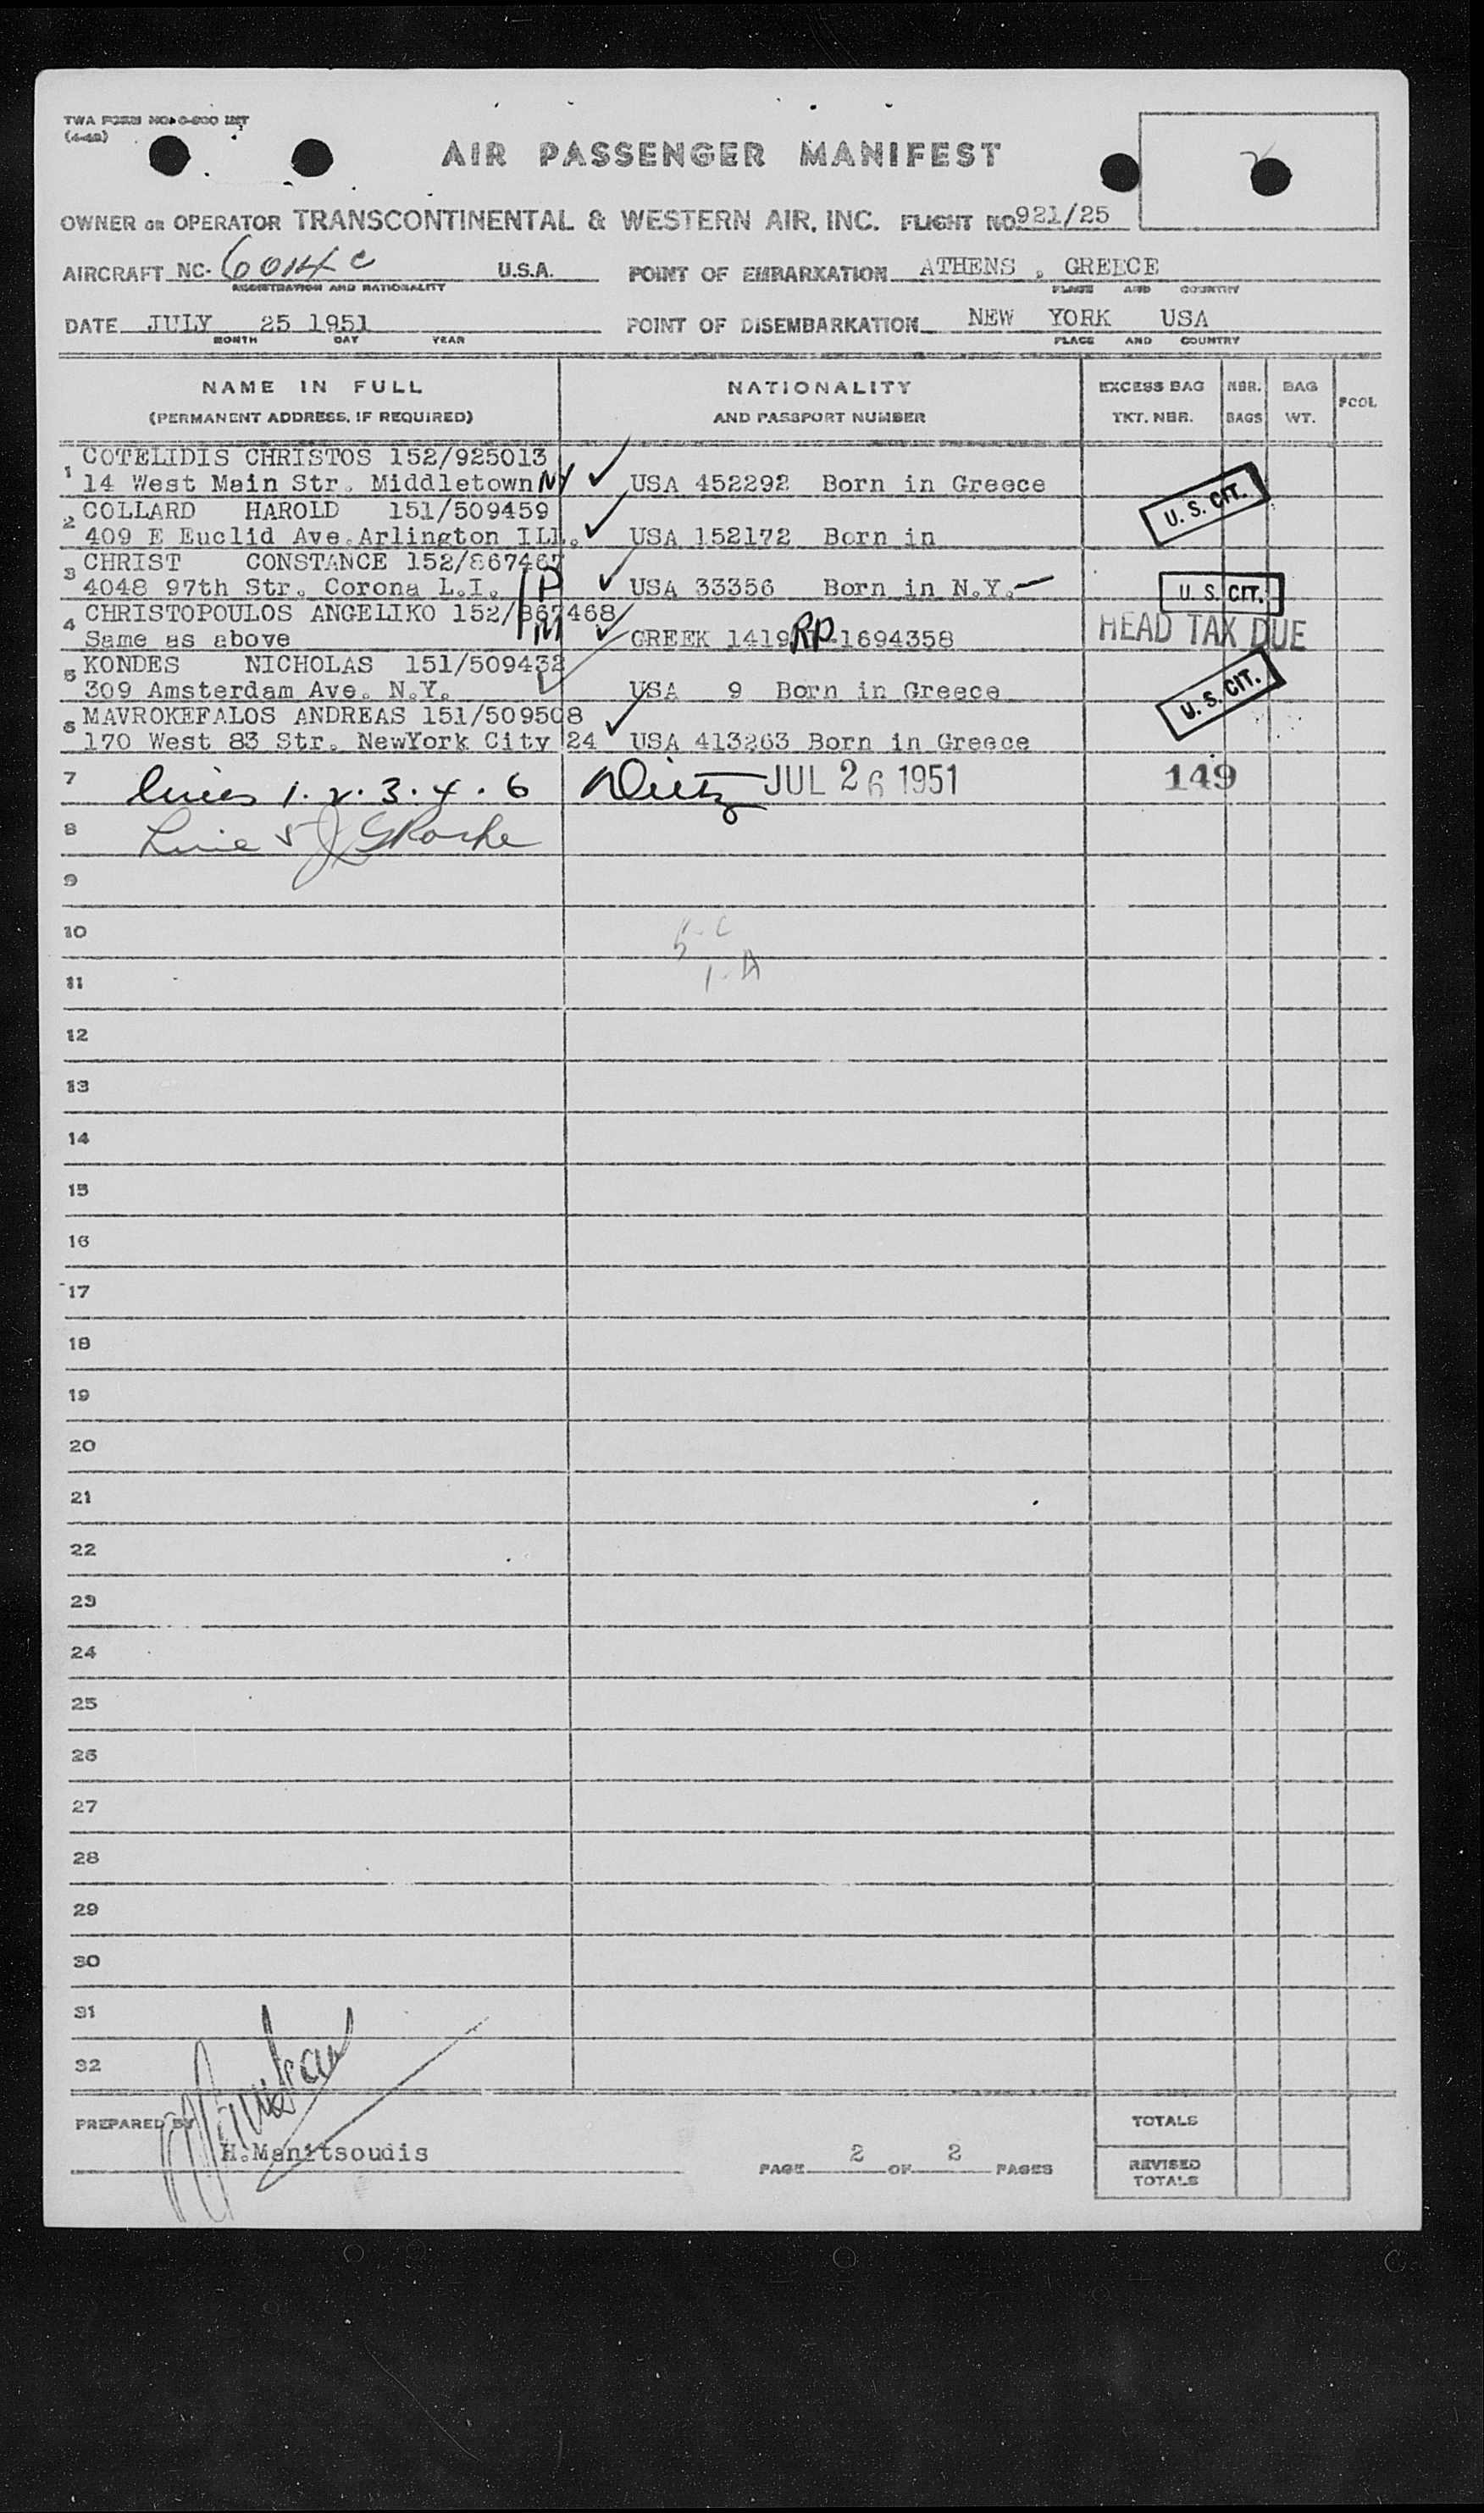 TWA FORM NO. O-800 INT
(4-48)
AIR PASSENGER MANIFEST
OWNER OR OPERATOR TRANSCONTINENTAL & WESTERN AIR, INC. FLIGHT NO 921/25
AIRCRAFT NC- 6014 C U.S.A. POINT OF EMBARKATION ATHENS , GREECE
REGISTRATION AND NATIONALITY PLACE AND COUNTRY
DATE JULY 25 1951 POINT OF DISEMBARKATION NEW YORK USA
MONTH DAY YEAR PLACE AND COUNTRY
NAME IN FULL NATIONALITY EXCESS BAG NBR. BAG PCOL
(PERMANENT ADDRESS, IF REQUIRED) AND PASSPORT NUMBER TKT. NBR. BAGS WT.
COTELIDIS CHRISTOS 152/925013
1 14 West Main Str. Middletown NY USA 452292 Born in Greece U. S. CIT.
2 COLLARD HAROLD 151/509459
409 E Euclid Ave. Arlington ILL. USA 152172 Born in
3 CHRIST CONSTANCE 152/867467
4048 97th Str. Corona L.I. P USA 33356 Born in N.Y. U. S. CIT.
4 CHRISTOPOULOS ANGELIKO 152/867468
Same as above M GREEK 1419 RP-1694358 HEAD TAX DUE
5 KONDES NICHOLAS 151/509432
309 Amsterdam Ave. N.Y. USA 9 Born in Greece U. S. CIT.
6 MAVROKEFALOS ANDREAS 151/509508
170 West 83 Str. NewYork City 24 USA 413263 Born in Greece
7 lines 1. 2. 3. 4. 6 Dietz JUL 26 1951 149
8 Line 5
9
10 5-C
11 1-A
12
13
14
15
16
17
18
19
20
21
22
23
24
25
26
27
28
29
30
31
32
PREPARED BY TOTALS
H. Manitsoudis PAGE 2 OF 2 PAGES REVISED
TOTALS